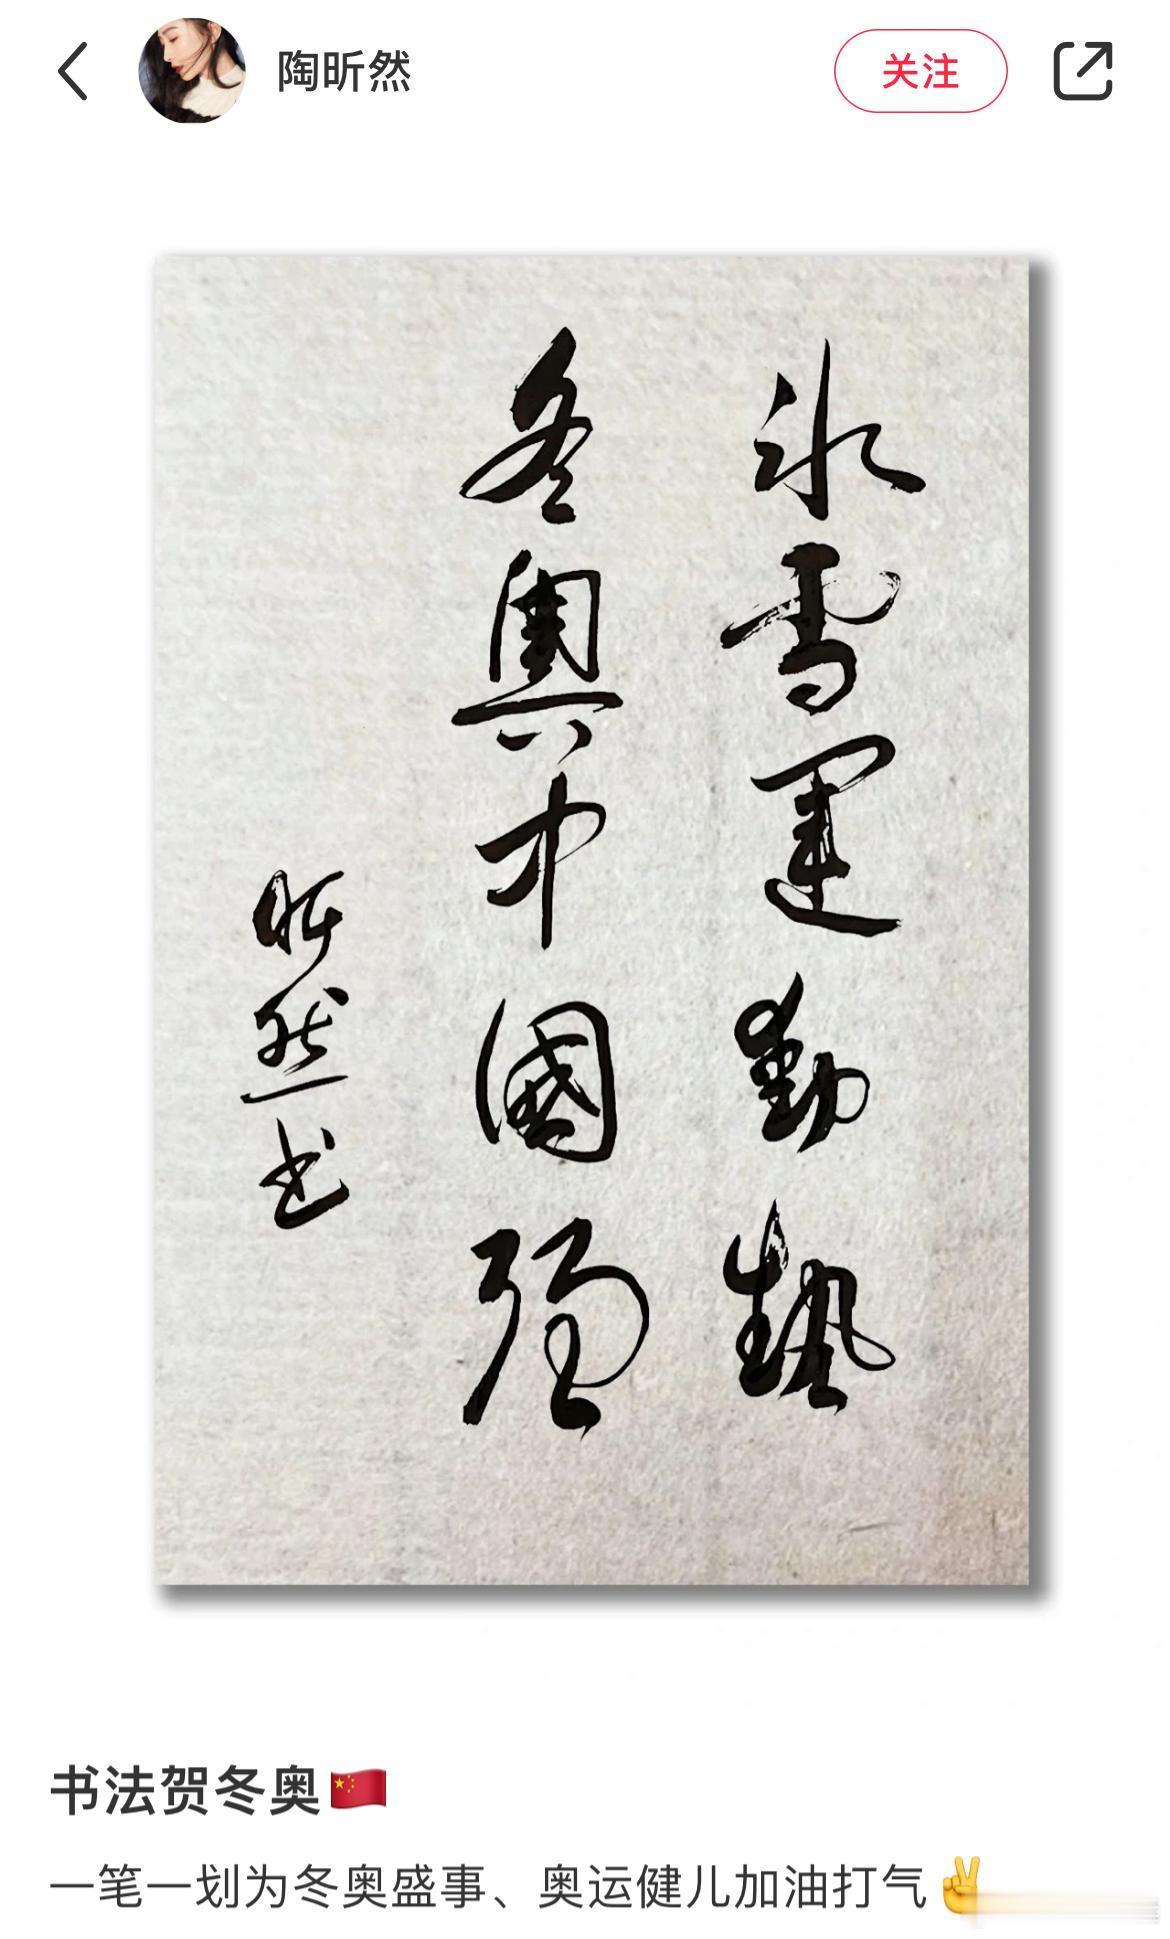 陶昕然
关注
冰雪運動勢
冬奧中國强
昕然书
书法贺冬奥🇨🇳
一笔一划为冬奥盛事、奥运健儿加油打气✌️